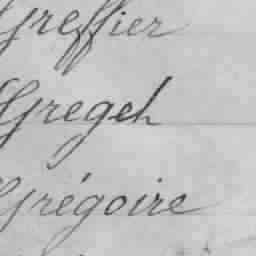 Greffier
Gregeh
Grégoire